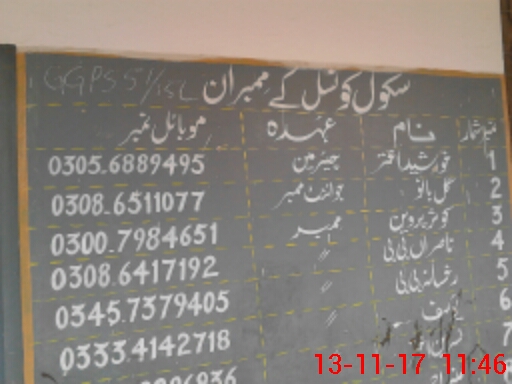 GGPS 51/15L
سکول کونسل کے ممبران
نمبر شمار نام عہدہ موبائل نمبر
1 خورشید اختر چیرمین 0305.6889495
2 گل بانو جوائنٹ ممبر 0308.6511077
3 کوثر پروین ممبر 0300.7984651
4 ناصراں بی بی 〃 0308.6417192
5 رخسانہ بی بی 〃 0345.7379405
6 0333.4142718
7
8
13-11-17 11:46